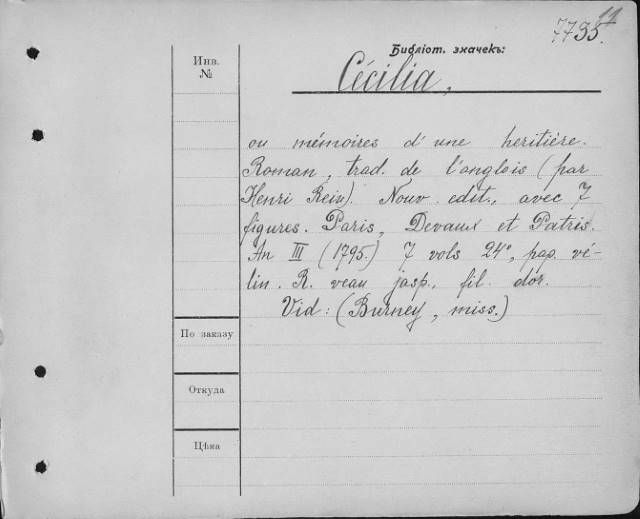 11
7735.
Библіот. значекъ:
Инв.
№
Cécilia,
ou mémoires d'une heritière.
Roman, trad. de l'anglois (par
Henri Rein). Nouv. edit., avec 7
figures. Paris, Devaux et Patris.
An III (1795.) 7 vols 24°, pap. vé-
lin. R. veau jasp., fil. dor.
Vid: (Burney, miss.)
По заказу
Откуда
Цѣна